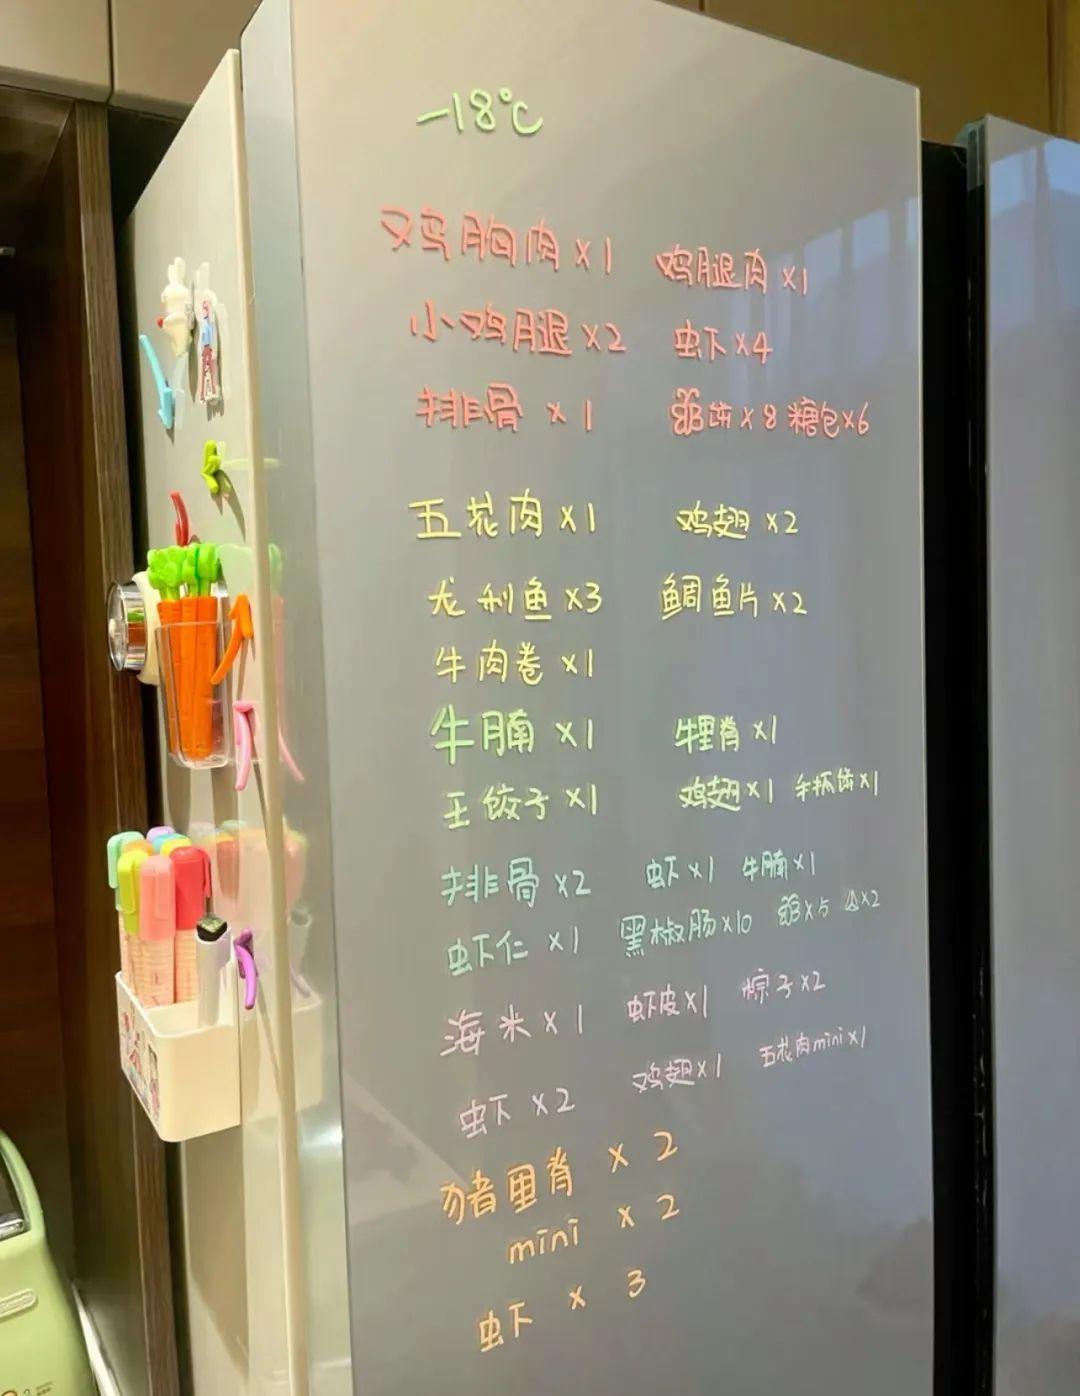 -18℃
鸡胸肉 x1 鸡腿肉 x1
小鸡腿 x2 虾 x4
排骨 x 1 饼 x 8 糖包 x6
五花肉 x1 鸡翅 x2
龙利鱼 x3 鲷鱼片 x2
牛肉卷 x1
牛腩 x1 牛里脊 x1
玉饺子 x1 鸡翅 x1 手抓饼 x1
排骨 x2 虾 x1 牛腩 x1
虾仁 x1 黑椒肠 x10 x2
海米 x 1 虾皮 x1 粽子 x2
虾 x2 鸡翅 x1 五花肉mini x1
猪里脊 x 2
mini x 2
虾 x 3